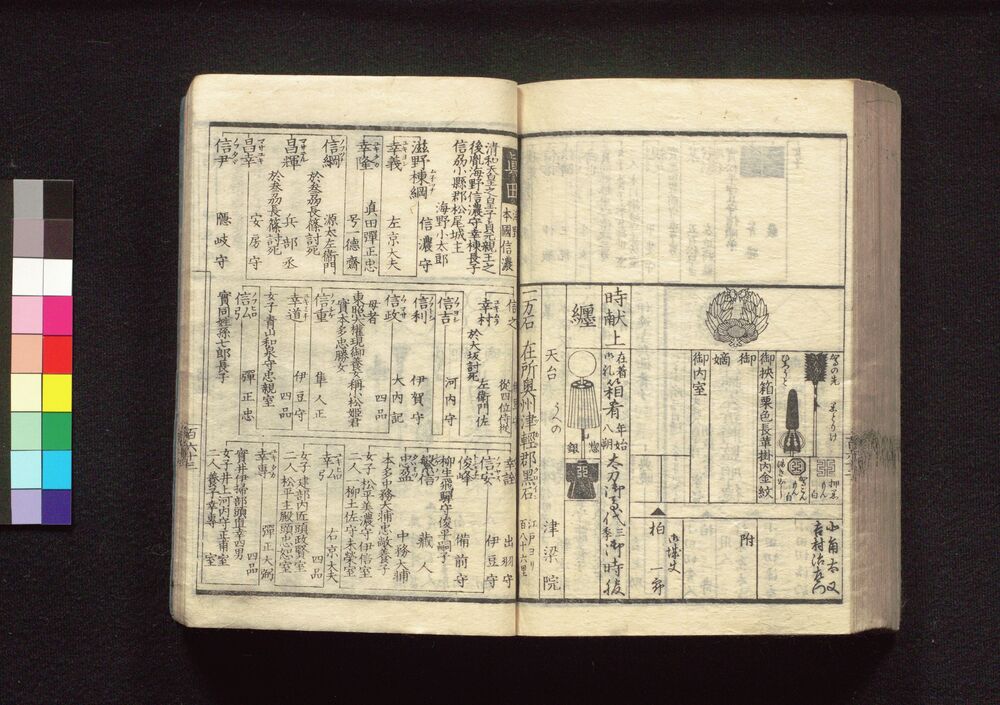 小角太又
吉村治左衛門
附
御城丈
柏一郎
御挾箱栗色長革掛内金紋
御
嫡
御内室
時献上
在着御礼
箱肴
年始八朔
太刀御馬代
三季御時服
纏
惣銀
天台
うへの
津梁院
一万石
在所奥州津輕郡黒石
江戸ヨリ百八十六里
眞田
本國信濃
清和天皇之皇子貞元親王之
後胤海野信濃守幸棟長子
信刕小縣郡松尾城主
海野小太郎
滋野棟綱
信濃守
幸義
左京大夫
幸隆
真田彈正忠
号一德齋
信綱
源太左衛門
於叁刕長篠討死
昌輝
兵部丞
於叁刕長篠討死
昌幸
安房守
信尹
隱岐守
信之
從四位侍從
幸村
左衛門佐
於大坂討死
信吉
河内守
信利
伊賀守
信政
大内記
四品
母者
東照大權現御養女稱小松姫君
實本多忠勝女
信重
隼人正
幸道
伊豆守
四品
女子青山和泉守忠親室
信弘
彈正忠
實同姓孫七郎長子
幸詮
出羽守
信安
伊豆守
俊峰
備前守
柳生飛騨守俊平嗣子
繁信
蔵人
忠盈
中務大輔
本多中務大輔忠敞養子
女子松平美濃守伊信室
二人柳土佐守末榮室
幸弘
右京大夫
四品
女子建部内匠頭政賢室
二人松平主殿頭忠恕室
幸專
彈正大弼
四品
實井伊掃部頭直幸四男
女子井上河内守正甫室
二人養子幸專室
百六十三